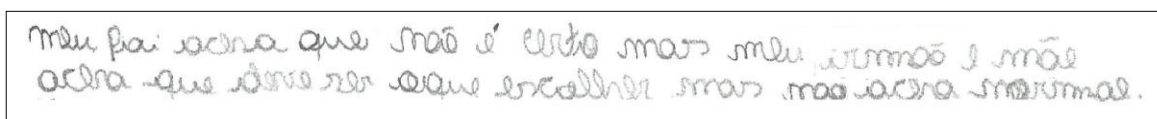 meu pai acha que não é certo mais meu irmão e mãe
acha que deve ser oque escolher mas não acha normmal.